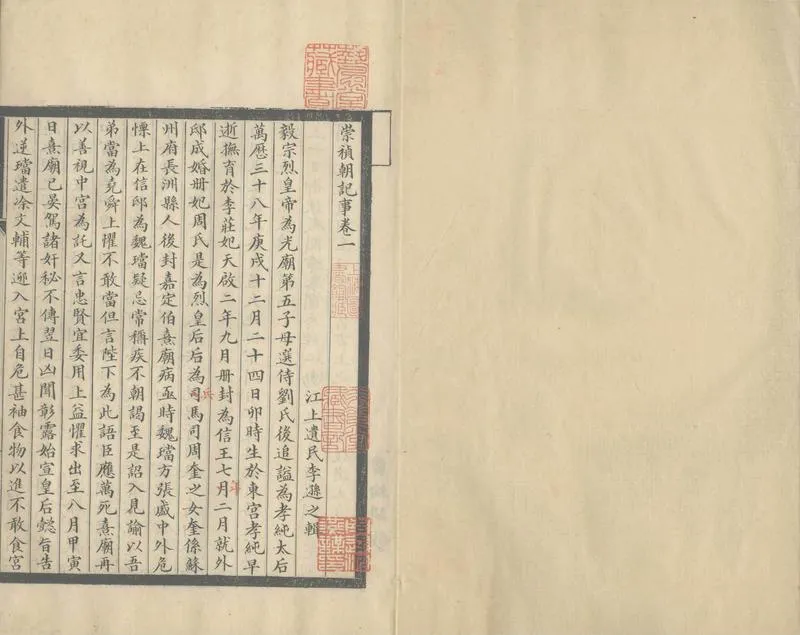 崇禎朝記事卷一
江上遺民李遜之輯
毅宗烈皇帝為光廟第五子母選侍劉氏後追謚為孝純太后
萬曆三十八年庚戌十二月二十四日卯時生於東宮孝純早
逝撫育於李莊妃天啟二年九月册封為信王七月二月就外
年
邸成婚册妃周氏是為烈皇后后為司馬司周奎之女奎係蘇
兵
州府長洲縣人後封嘉定伯熹廟病亟時魏璫方張戚中外危
慄上在信邸為魏璫疑忌常稱疾不朝謁至是詔入見諭以吾
弟當為堯舜上懼不敢當但言陛下為此語臣應萬死熹廟再
以善視中宮為託又言忠賢宜委用上益懼求出至八月甲寅
日熹廟已晏駕諸奸秘不傳翌日凶聞彰露始宣皇后懿旨告
外逆璫遣涂文輔等迎入宮上自危甚袖食物以進不敢食宮